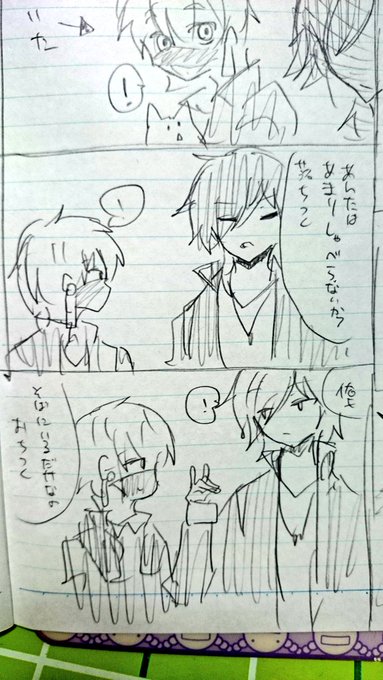 いた
!
あんたは
あまりしゃべらないから
落ちつく
!
俺も
!
そばにいるだけなの
おちつく